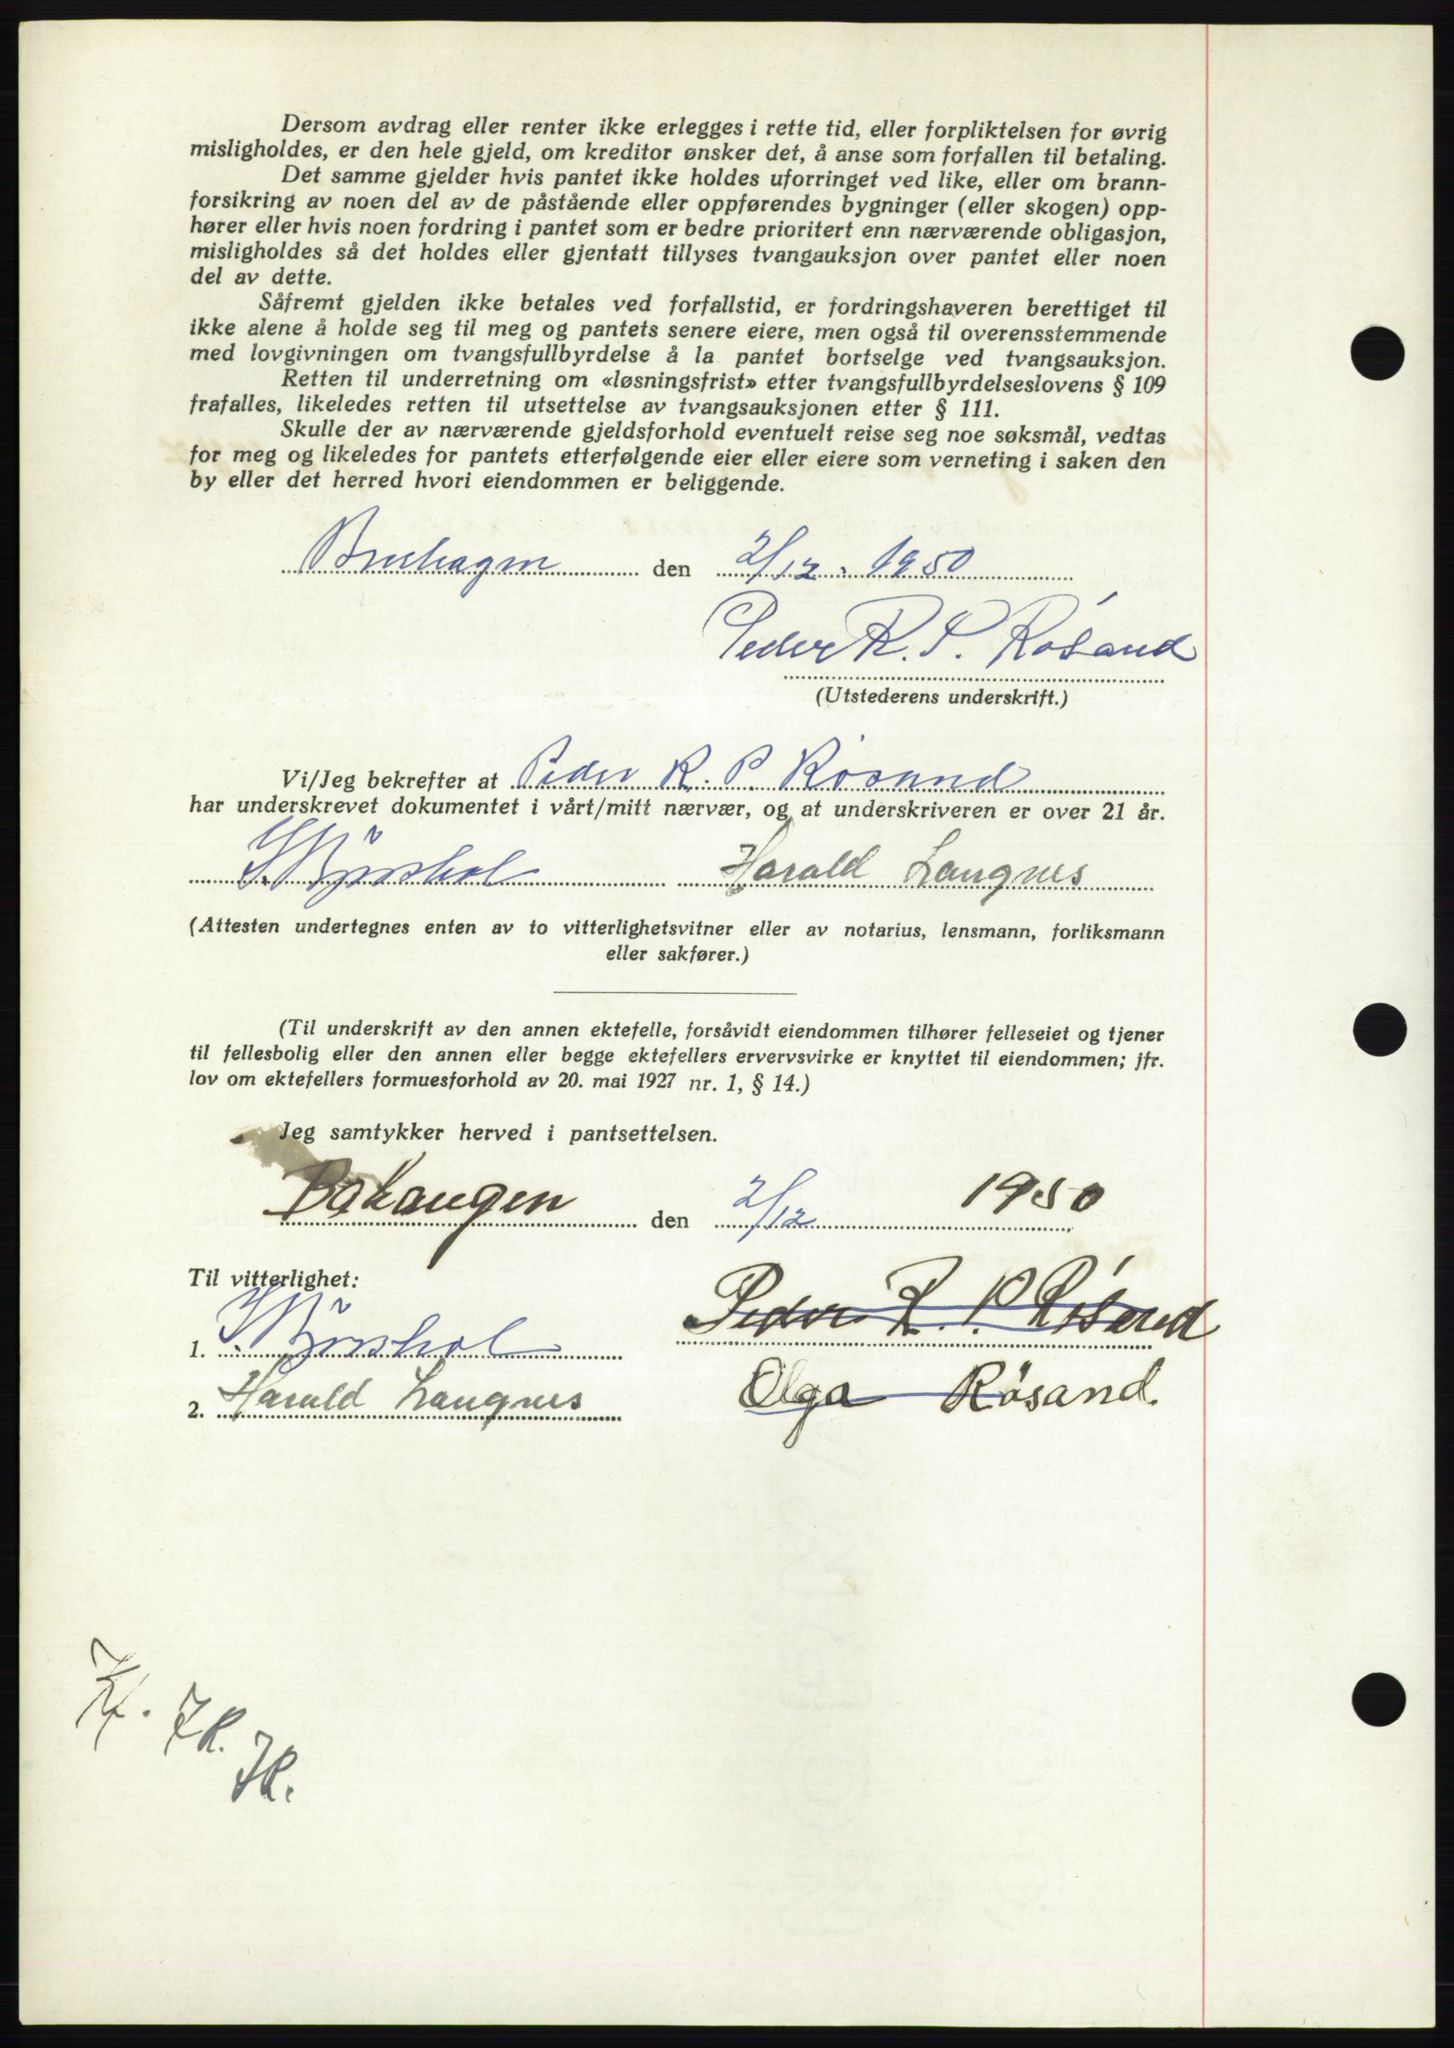 Dersom avdrag eller renter ikke erlegges i rette tid, eller forpliktelsen for øvrig
misligholdes, er den hele gjeld, om kreditor ønsker det, å anse som forfallen til betaling.
Det samme gjelder hvis pantet ikke holdes uforringet ved like, eller om brann-
forsikring av noen del av de påstående eller oppførendes bygninger (eller skogen) opp-
hører eller hvis noen fordring i pantet som er bedre prioritert enn nærværende obligasjon,
misligholdes så det holdes eller gjentatt tillyses tvangauksjon over pantet eller noen
del av dette.
Såfremt gjelden ikke betales ved forfallstid, er fordringshaveren berettiget til
ikke alene å holde seg til meg og pantets senere eiere, men også til overensstemmende
med lovgivningen om tvangsfullbyrdelse å la pantet bortselge ved tvangsauksjon.
Retten til underretning om «løsningsfrist» etter tvangsfullbyrdelseslovens § 109
frafalles, likeledes retten til utsettelse av tvangsauksjonen etter § 111.
Skulle der av nærværende gjeldsforhold eventuelt reise seg noe søksmål, vedtas
for meg og likeledes for pantets etterfølgende eier eller eiere som verneting i saken den
by eller det herred hvori eiendommen er beliggende.
den 2/12. 1950
Peder R. P. Rósand
(Utstederens underskrift.)
Vi/Jeg bekrefter at Peder R. P. Rósand
har underskrevet dokumentet i vårt/mitt nærvær, og at underskriveren er over 21 år.
Harald Langnes
(Attesten undertegnes enten av to vitterlighetsvitner eller av notarius, lensmann, forliksmann
eller sakfører.)
(Til underskrift av den annen ektefelle, forsåvidt eiendommen tilhører felleseiet og tjener
til fellesbolig eller den annen eller begge ektefellers ervervsvirke er knyttet til eiendommen; jfr.
lov om ektefellers formuesforhold av 20. mai 1927 nr. 1, § 14.)
Jeg samtykker herved i pantsettelsen.
den 2/12 1950
Til vitterlighet:
Peder R. P. Rósand
1.
Olga Rösand.
2. Harald Langnes